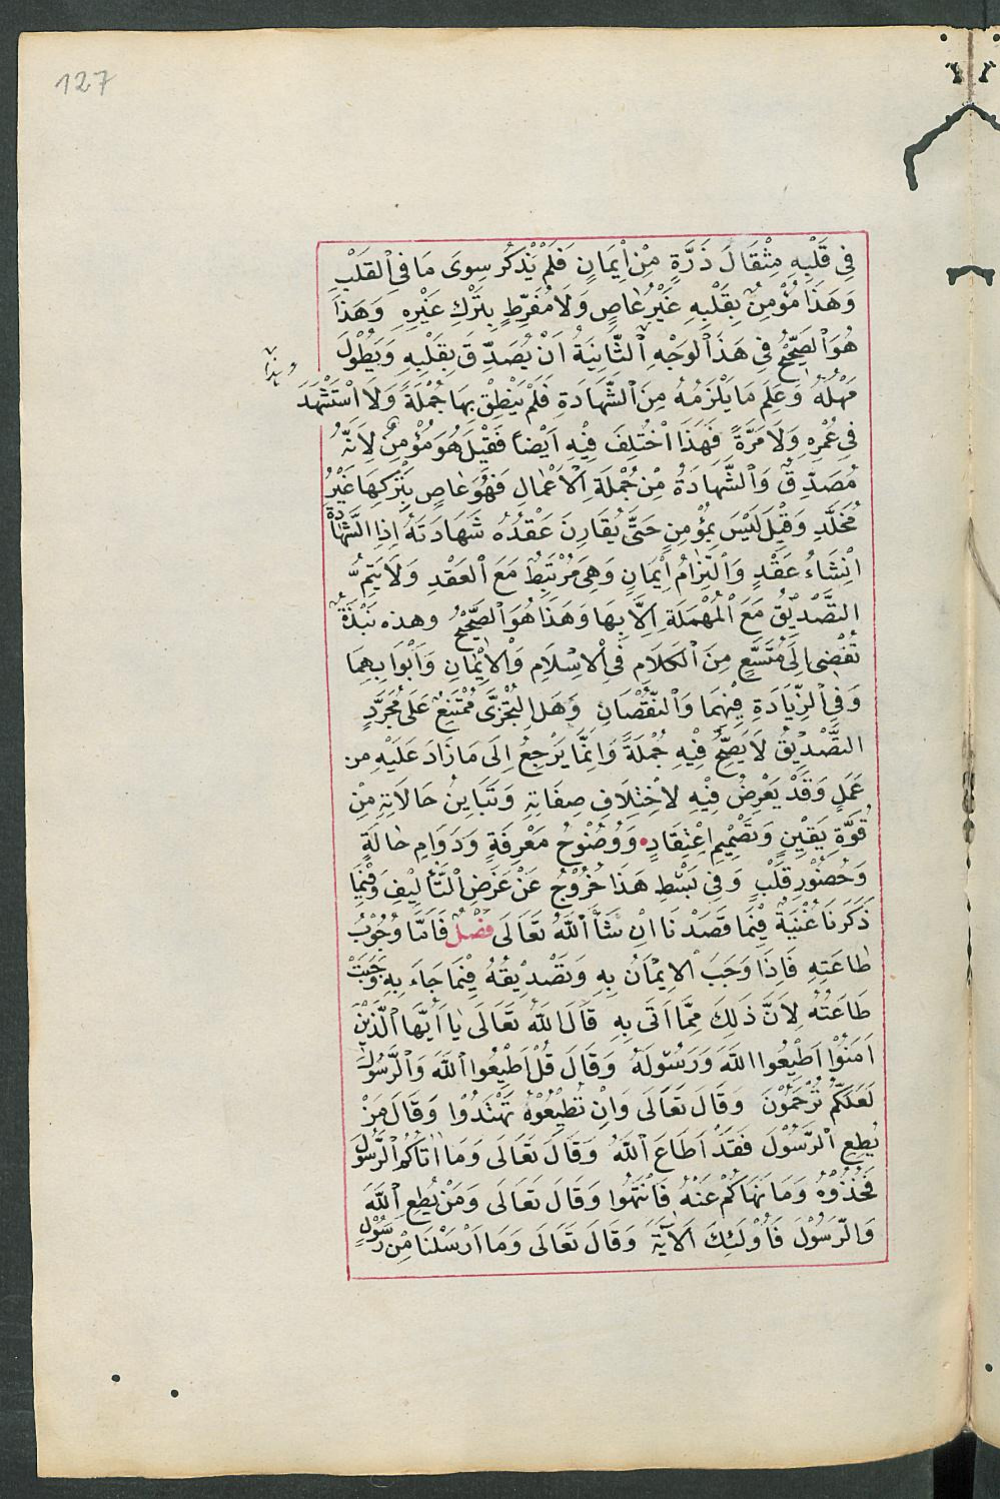 127
فِي قَلْبِهِ مِثْقَالَ ذَرَّةٍ مِنْ اِيمَانٍ فَلَمْ يَذْكُر سِوَى مَا فِي اْلقَلْبِ
وَهَذَا مُؤْمِنٌ بِقَلْبِهِ غَيْرُ عَاصٍ وَلَا مُفَرِّطٍ بِتَرْكِ غَيْرِهِ وَهَذَا
هُوَ اْلصَّحِيْحُ فِي هَذَا اْلوَجْهِ اْلثَّانِيَةُ اَنْ يُصَدِّقَ بِقَلْبِهِ وَيُطْوِلَ
مَهْلُهُ وَعَلِمَ مَا يَلْزَمُهُ مِنَ اْلشَّهَادَةِ فَلَمْ يَنْطِقْ بِهَا جُمْلَةً وَلَا اسْتَشْهَدَ
فِي عُمْرِهِ وَلَا مَرَّةً فَهَذَا اخْتُلِفَ فِيْهِ اَيْضاً فَقِيْلَ هُوَ مُؤْمِنٌ لِاَنَّهُ
مُصَدِّقٌ وَاْلشَّهَادَةُ مِنْ جُمْلَةِ اْلاَعْمَالِ فَهُوَ عَاصٍ بِتَرْكِهَا غَيْرُ
مُخَلَّدٍ وَقِيْلَ لَيْسَ بِمُؤْمِنٍ حَتَّى يُقَارِنَ عَقْدُهُ شَهَادَتَهُ اِذِ الشَّهَادَةُ
اِنْشَاءُ عَقْدٍ وَاْلتِزَامُ اِيمَانٍ وَهِيَ مُرْتَبِطٌ مَعَ اْلعَقْدِ وَلَا يَتِمُّ
التَّصْدِيْقُ مَعَ اْلمُهْمَلَةِ اِلَّا بِهَا وَهَذَا هُوَ اْلصَّحِيْحُ وهذه نَبْذَةٌ
تُفْضِى اِلَى مُتَّسَعٍ مِنَ اْلكَلَامِ فِي اْلاِسْلَامِ وَاْلاِيْمَانِ وَاَبْوَابِهِمَا
وَفِي اْلزِّيَادَةِ فِيْهِمَا وَاْلنُّقْصَانِ وَهَلِ التَّجَزَّى مُمْتَنِعٌ عَلَى مُجَرَّدٍ
التَّصْدِيْقُ لَا يَصِحُّ فِيْهِ جُمْلَةً وَاِنَّمَا يَرْجِعُ اِلَى مَا زَادَ عَلَيْهِ من
عَمَلٍ وَقَدْ يَعْرِضُ فِيْهِ لِاخْتِلَافِ صِفَاتِهِ وَتَبَايِنُ حَالَاتِهِ مِنْ
قُوَّةِ يَقِيْنٍ وَتَصْمِيْمِ اِعْتِقَادٍ • وَوُضُوْحُ مَعْرِفَةٍ وَدَوَامِ حَالَةٍ
وَحُضُوْرِ قَلْبٍ وَفِي بَسْطِ هَذَا خُرُوْجٌ عَنْ غَرَضِ اْلتَّأْلِيْفِ وَفِيْمَا
ذَكَرْنَا غُنْيَةٌ فِيْمَا قَصَدْنَا اِنْ شَآءَ اللّٰهُ تَعَالَى فَصْلٌ فَاَمَّا وُجُوْبُ
طَاعَتِهِ فَاِذَا وَجَبَ اْلاِيْمَانُ بِهِ وَتَصْدِيْقُهُ فِيْمَا جَاءَ بِهِ وَجَبَتْ
طَاعَتُهُ لِاَنَّ ذَلِكَ مِمَّا اَتَى بِهِ قَالَ اللّٰهُ تَعَالَى يَا اَيُّهَا الَّذِيْنَ
اَمَنُوْا اَطِيْعُوا اللّٰهَ وَرَسُوْلَهُ وَقَالَ قُلْ اَطِيْعُوا اللّٰهَ وَاْلرَّسُوْلَ
لَعَلَّكُمْ تُرْحَمُوْنَ وَقَالَ تَعَالَى وَاِنْ تُطِيْعُوْهُ تَهْتَدُوْا وَقَالَ مَنْ
يُطِعِ اْلرَّسُوْلَ فَقَدْ اَطَاعَ اللّٰهَ وَقَالَ تَعَالَى وَمَا اٰتَاكُمُ اْلرَّسُوْلُ
فَخُذُوْهُ وَمَا نَهَاكُمْ عَنْهُ فَانْتَهُوا وَقَالَ تَعَالَى وَمَنْ يُطِعِ اللّٰهَ
وَالرَّسُوْلَ فَاُوْلَئِكَ اْلآيَةَ وَقَالَ تَعَالَى وَمَا اَرْسَلْنَا مِنْ رَسُوْلٍ